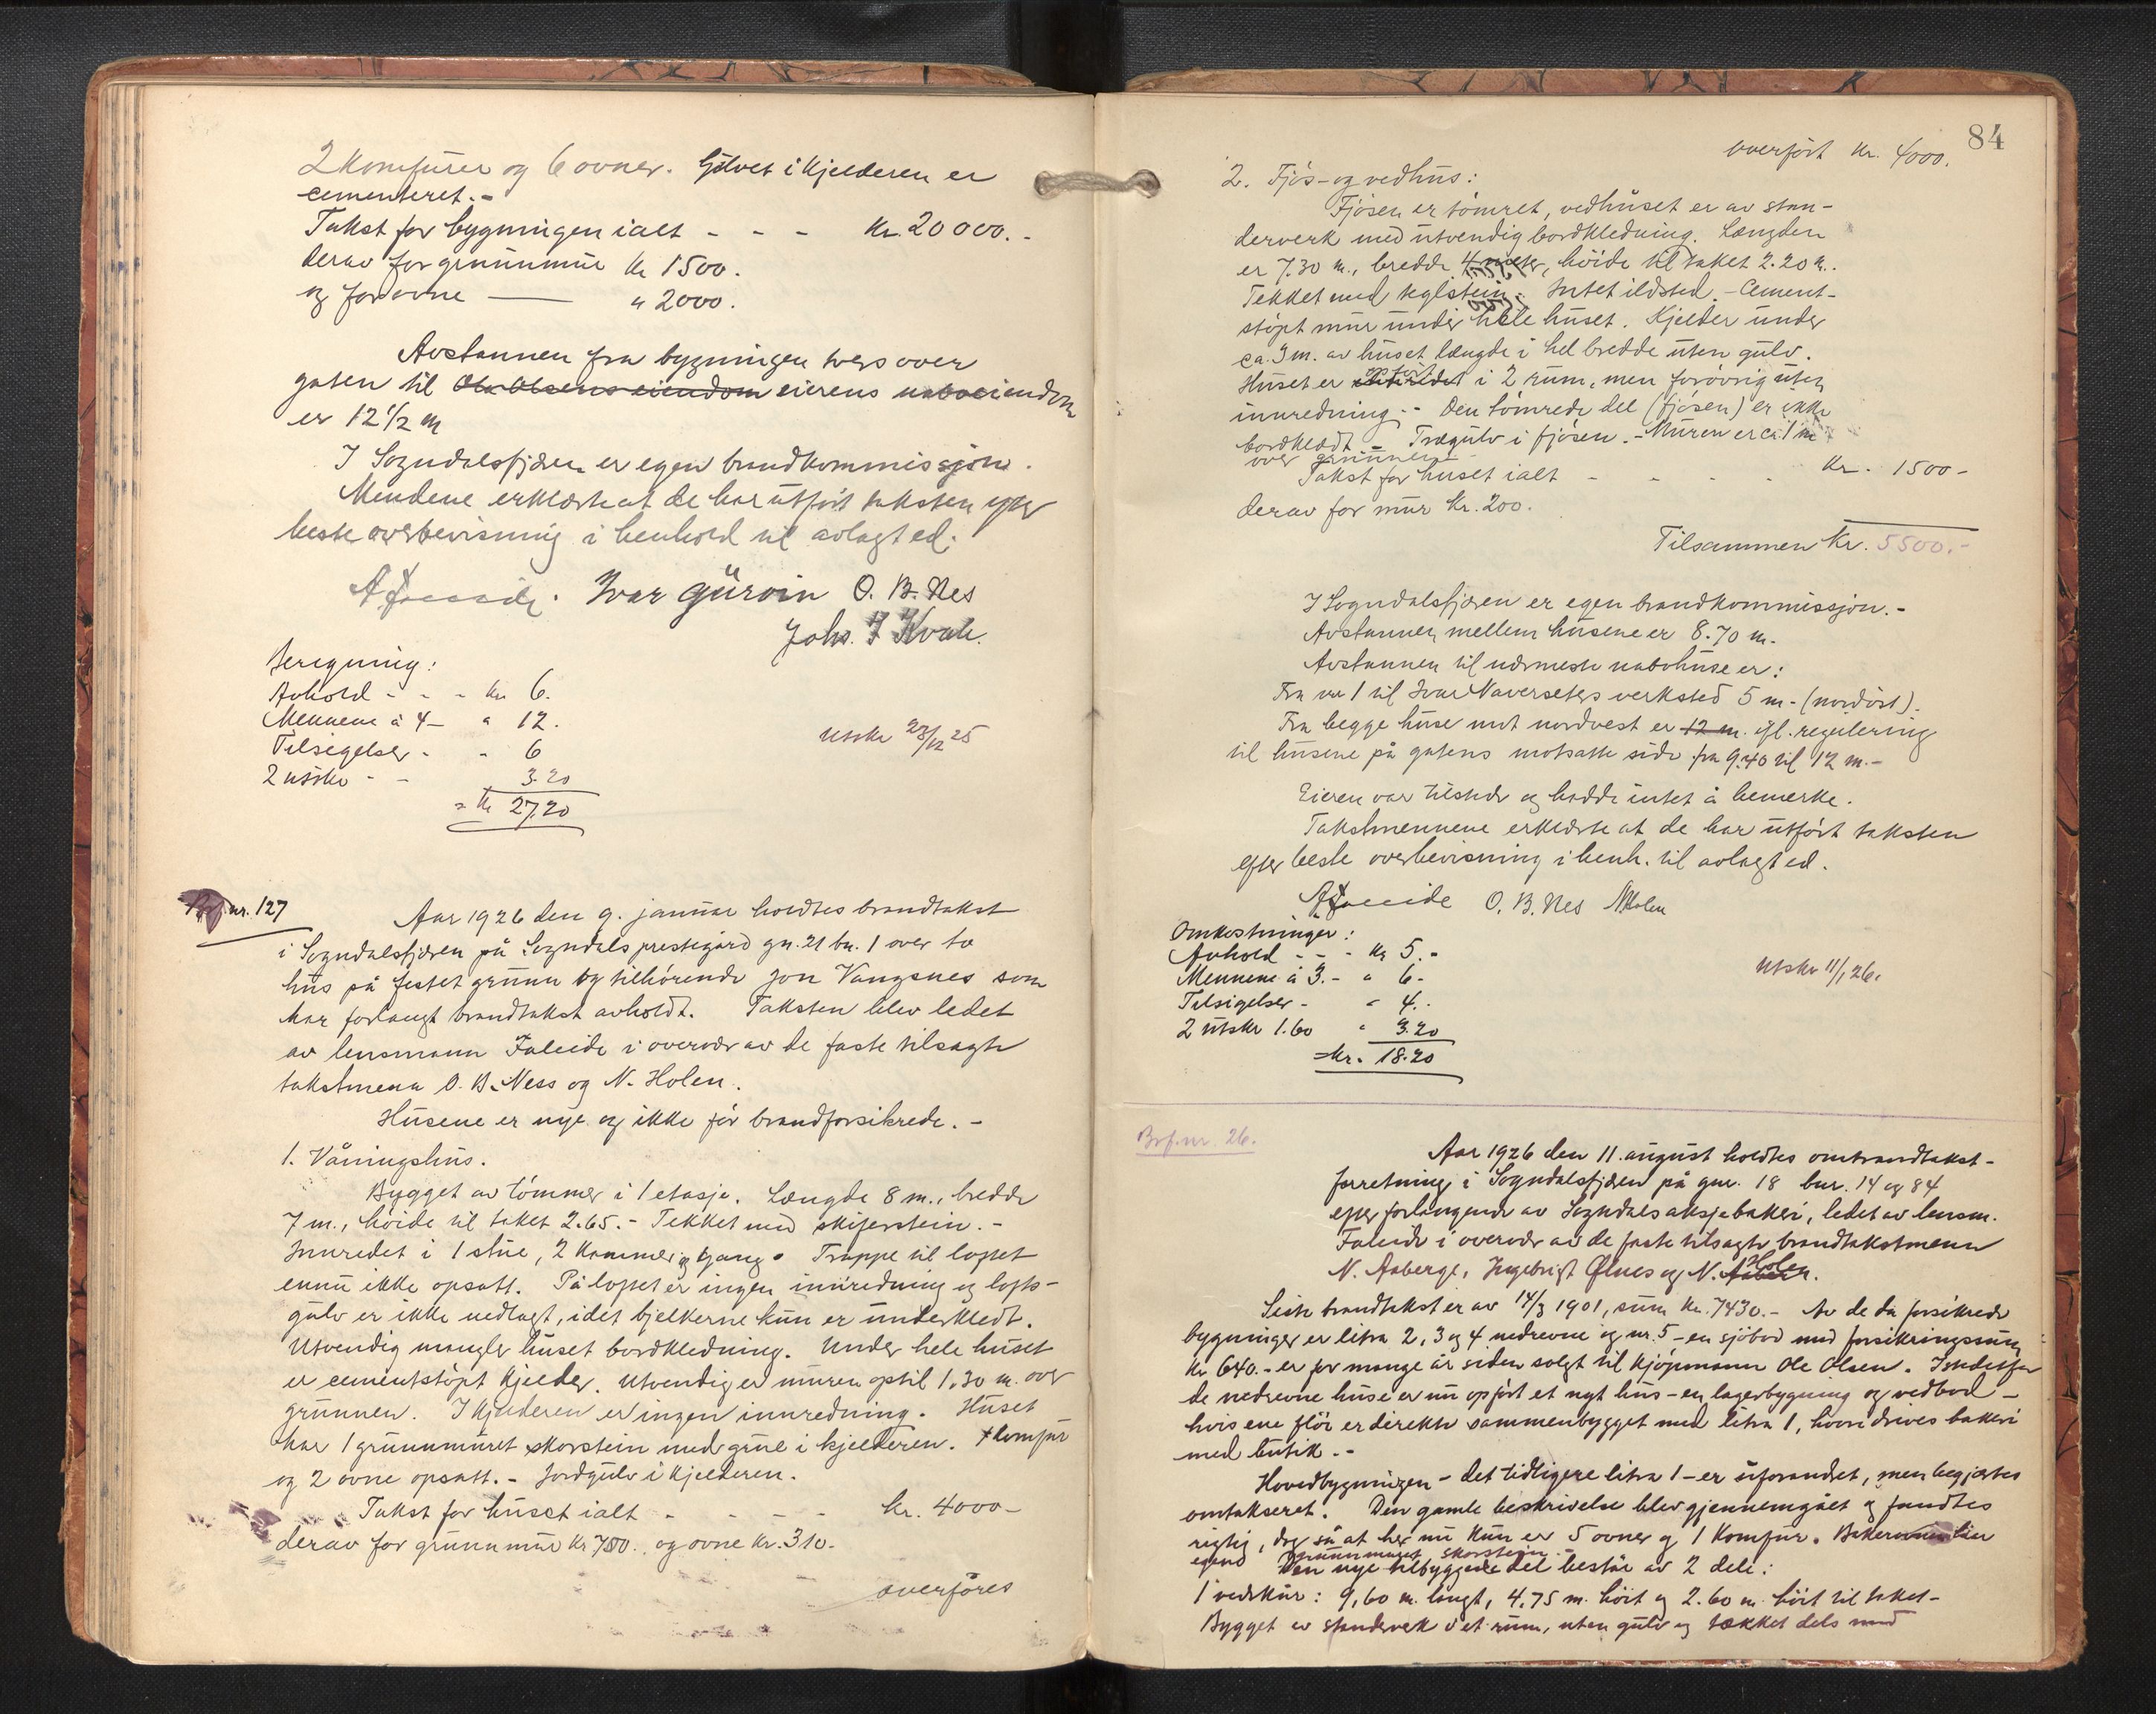 2 Komfurer og 6 ovner. Gulvet i kjelderen er
cementeret.-
Takst for bygningen ialt - - - kr. 20 000.-
derav for grunnmur kr 1500.
og for ovne — " 2000.
Avstannen fra bygningen tvers over
gaten til Ola Olsens eiendom eierens naboeiendom
er 12 1/2 m
I Sogndalsfjæren er egen brandkommissjon.
Mendene erklærte at de har utført taksten efter
beste overbevisning i henhold til avlagt ed.
Ivar Gurvin O. B. Nes
Johs. J Kvale.
Beregning:
Avhold - - - kr 6.
Mennene à 4- " 12.
Tilsigelser - " 6
2 utskr - - 3.20
= kr 27,20
Utskr 23/12 25
Bf nr. 127
Aar 1926 den 9. januar holdtes brandtakst
i Sogndalsfjæren på Sogndals prestegård gn. 21 bn. 1 over to
hus på festet grunn og tilhørende Jon Vangsnes som
har forlangt brandtakst avholdt. Taksten blev ledet
av lensmann Faleide i overvær av de faste tilsagte
takstmenn O. B. Ness og N. Holen.
Husene er nye og ikke før brandforsikrede. -
1. Våningshus.
Bygget av tømmer i 1 etasje. Længde 8 m., bredde
7 m., høide til taket 2.65.- Tekket med skiferstein. -
Innredet i 1 stue, 2 kammer og gang. Trappe til loftet
ennu ikke opsatt. På loftet er ingen innredning og lofts-
gulv er ikke nedlagt, idet bjelkerne kun er underkledt.
Utvendig mangler huset bordkledning. Under hele huset
er cementstøpt kjelder. Utvendig er muren optil 1.30 m. over
grunnen. I kjelderen er ingen innredning. Huset
har 1 grunnmuret skorstein med grue i kjelderen. 1 komfur
og 2 ovne opsatt.- Jordgulv i kjelderen.
Takst for huset ialt - - - - kr. 4000-
derav for grunnmur kr 750. og ovne kr. 310.
overføres
84
overført kr. 4000.
2. Fjøs- og vedhus:
Fjøsen er tømret, vedhuset er av stan-
derverk med utvendig bordkledning. Længden
er 7.30 m., bredde 4 meter, høide til taket 2.20 m.
Tekket med teglstein. Intet ildsted. - Cement-
støpt mur under hele huset. Kjelder under
ca. 3 m. av huset længde i hel bredde uten gulv.
Huset er i 2 rum, men forøvrig uten
innredning.- Den tømrede del (fjøsen) er ikke
bordklædt - Trægulv i fjøsen. - Muren er ca. 1 m
over grunnen
Takst for huset ialt - - - - kr. 1500-
derav for mur kr. 200.
Tilsammen Kr. 5500.-
I Sogndalsfjæren er egen brandkommissjon.-
Avstannen mellem husene er 8.70 m.
Avstannen til nærmeste nabohuse er:
Fra nr 1 til Ivar Navarsetes verksted 5 m. (nordøst).
Fra begge huse mot nordvest er 12 m. ifl. regulering
til husene på gatens motsatte side fra 9.40 til 12 m.-
Eieren var tilstede og hadde intet å bemerke.
Takstmennene erklærte at de har utført taksten
efter beste overbevisning i henh. til avlagt ed.
A Faleide O. B. Nes NHolen
Omkostninger:
Avhold - - - kr 5.-
Mennene à 3.- " 6-
Tilsigelser - " 4.-
2 utskr 1.60 " 3.20
=kr. 18.20
Utskr 11/1 26.
Brf.nr. 26.
Aar 1926 den 11. august holdtes ombrandtakst-
forretning i Sogndalsfjæren på gnr. 18 bnr. 14 og 84
efter forlangende av Sogndals aksjebakeri, ledet av lensm.
Faleide i overvær av de faste tilsagte brandtakstmenn
N. Aaberge, Ingebrigt Ølnes og N. Holen.
Siste brandtakst er av 14/3 1901, sum kr. 7430.- Av de da forsikrede
bygninger er litra 2, 3 og 4 nedrevne og nr. 5 - en sjøbod med forsikringssum
kr 640.- er for mange år siden solgt til kjøpmann Ole Olsen. Istedetfor
de nedrevne huse er nu opført et nyt hus - en lagerbygning og vedbod -
hvis ene fløi er direkte sammenbygget med litra 1, hvori drives bakeri
med butik.-
Hovedbygningen - det tidligere litra 1 - er uforandret, men begjæres
omtakseret. Den gamle beskrivelse blev gjennemgået og fandtes
rigtig, dog så at her nu kun er 5 ovner og 1 Komfur.
egen grunnmuret skorstein.-
Den nye tilbyggede del består av 2 dele:
1 vedskur: 9,60 m. langt, 4,75 m. høit og 2.60 m. høit til taket-
Bygget av standerverk i et rum, uten gulv og tækket dels med